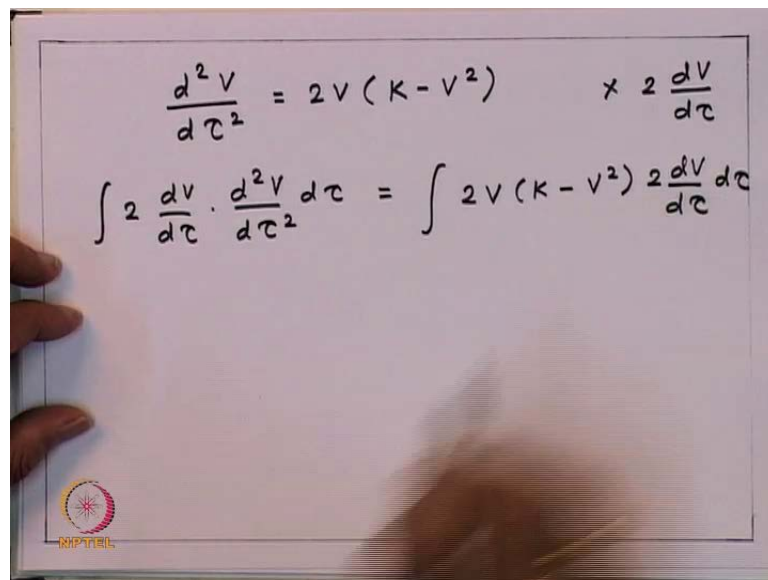 d²V/dτ² = 2V(K - V²)    × 2 dV/dτ
∫ 2 dV/dτ · d²V/dτ² dτ = ∫ 2V(K - V²) 2 dV/dτ dτ
NPTEL